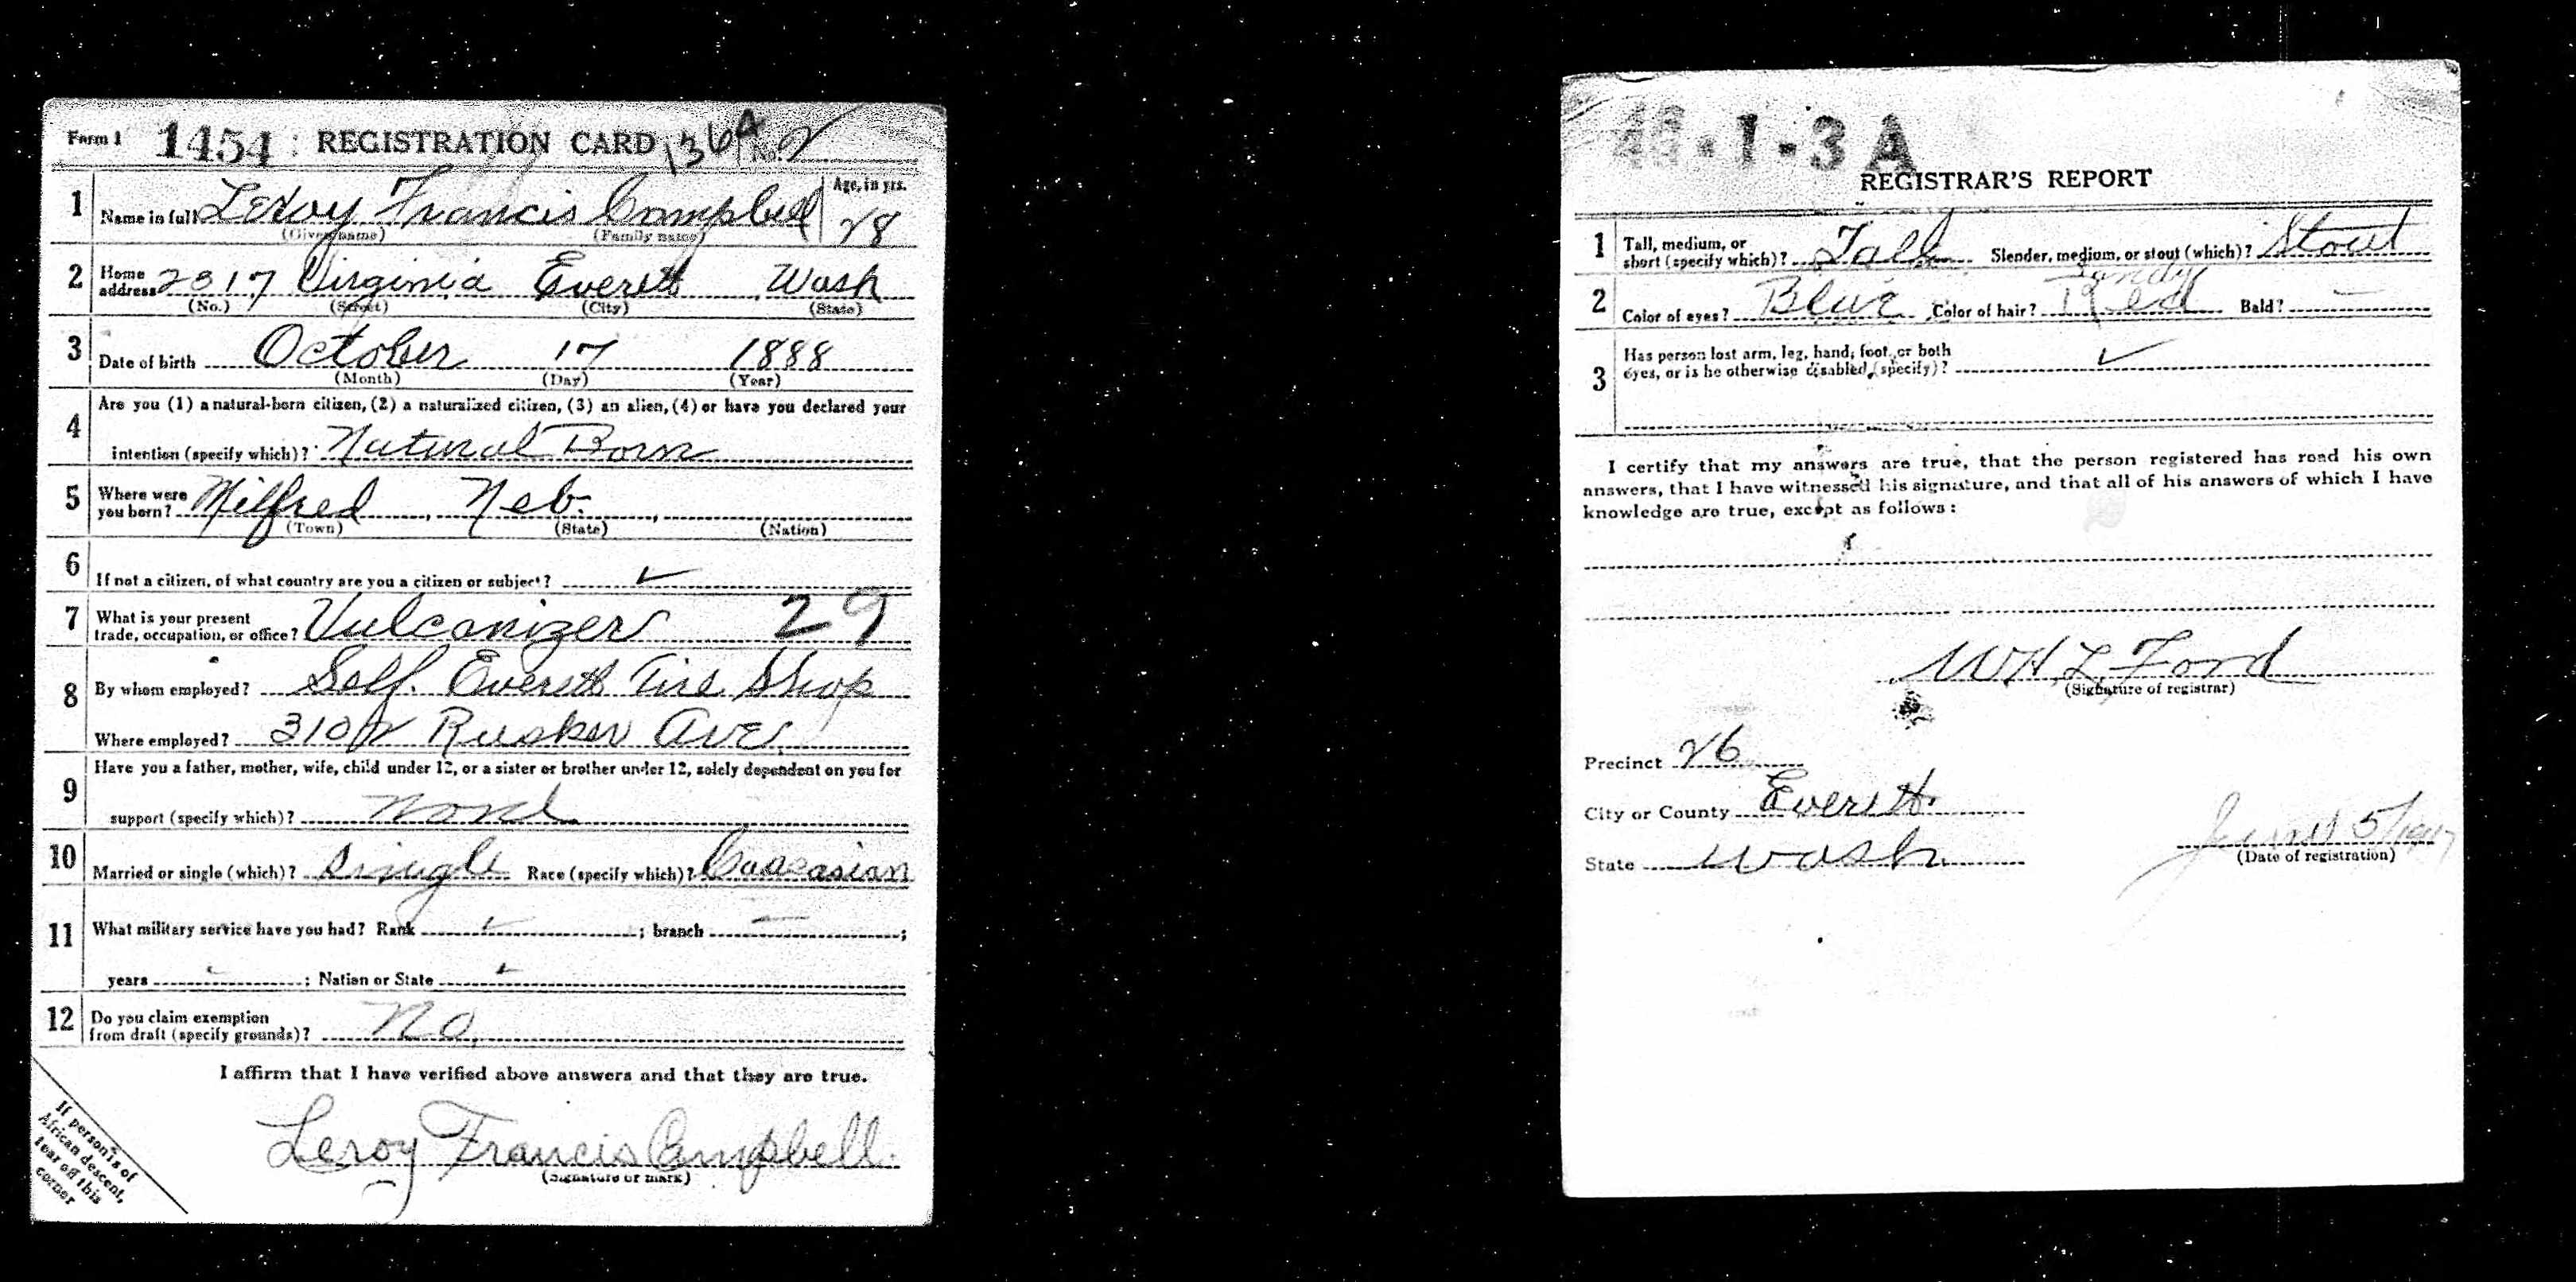 Form 1 1454 REGISTRATION CARD 1364 No. 2
1 Name in full Leroy Francis Campbell Age, in yrs. 28
(Given name) (Family name)
2 Home address 2317 Virginia Everett Wash
(No.) (Street) (City) (State)
3 Date of birth October 17 1888
(Month) (Day) (Year)
4 Are you (1) a natural-born citizen, (2) a naturalized citizen, (3) an alien, (4) or have you declared your
intention (specify which)? Natural Born
5 Where were you born? Milfred, Neb.
(Town) (State) (Nation)
6 If not a citizen, of what country are you a citizen or subject? ✓
7 What is your present
trade, occupation, or office? Vulcanizer 29
8 By whom employed? Self. Everett Tire Shop
Where employed? 3102 Rucker Ave.
9 Have you a father, mother, wife, child under 12, or a sister or brother under 12, solely dependent on you for
support (specify which)? None
10 Married or single (which)? Single Race (specify which)? Caucasian
11 What military service have you had? Rank ✓ ; branch — ;
years ; Nation or State ✓
12 Do you claim exemption
from draft (specify grounds)? No.
I affirm that I have verified above answers and that they are true.
Leroy Francis Campbell.
(Signature or mark)
If person is of
African descent,
tear off this
corner
46-1-3 A
REGISTRAR'S REPORT
1 Tall, medium, or
short (specify which)? Tall Slender, medium, or stout (which)? Stout
Sandy
2 Color of eyes? Blue Color of hair? Red Bald? —
3 Has person lost arm, leg, hand, foot, or both
eyes, or is he otherwise disabled (specify)? ✓
I certify that my answers are true, that the person registered has read his own
answers, that I have witnessed his signature, and that all of his answers of which I have
knowledge are true, except as follows:
WH. L. Ford
(Signature of registrar)
Precinct 26
City or County Everett.
State Wash. June 5/1917
(Date of registration)